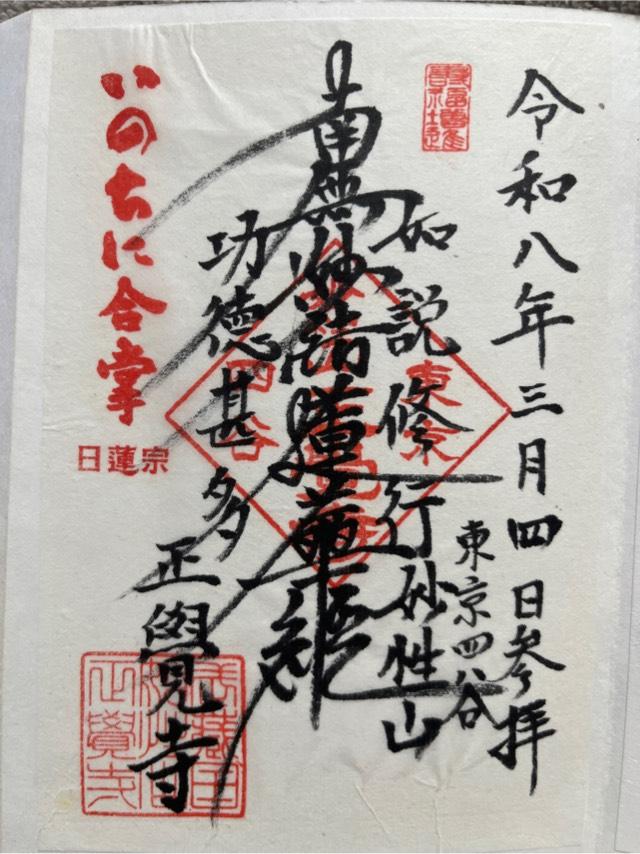 令和八年三月四日参拝
東京四谷
如説修行妙性山
南無妙法蓮華経
功徳甚多
正覺寺
いのちに合掌
日蓮宗
東京
四谷
正覺寺